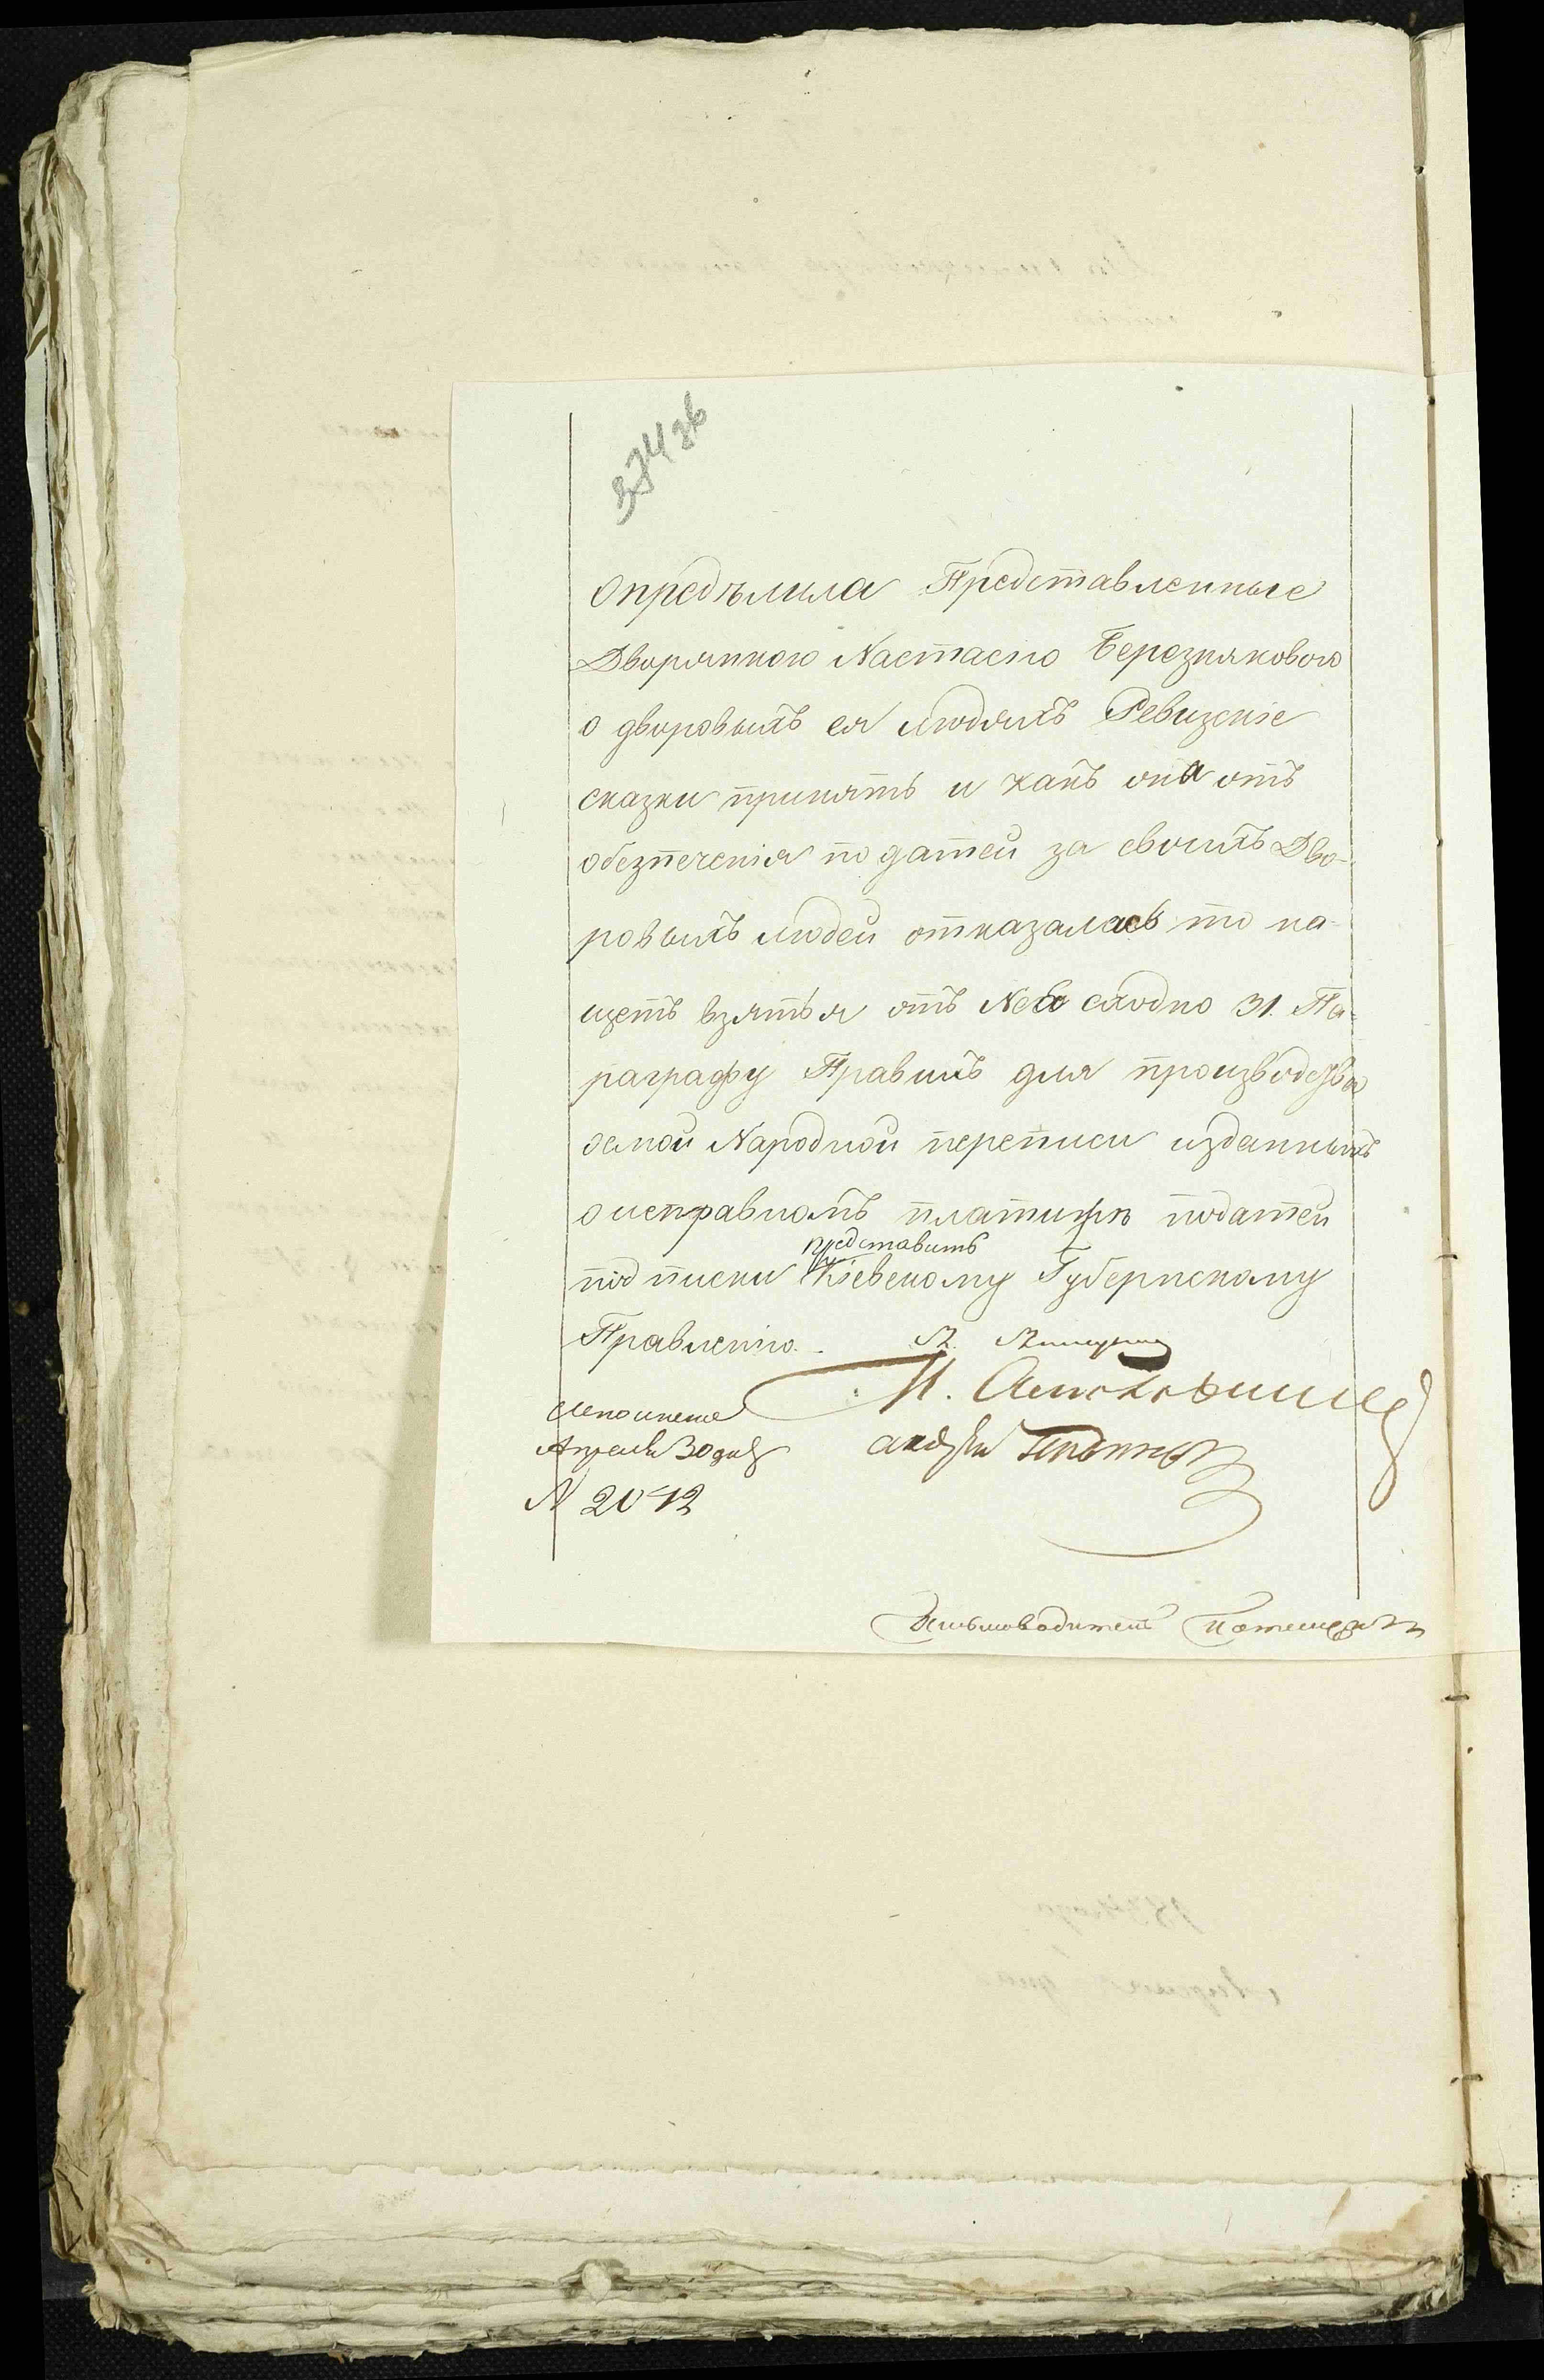 374 зв
опредѣлила Представленные
Дворянкою Настасіею Березняковою
о дворовыхъ ея людяхъ Ревизскіе
сказки принять и какъ она отъ
обезпеченія податей за своихъ Дво-
ровыхъ людей отказалась то на-
щетъ взятья отъ Нея сходно 31. Па-
раграфу Правилъ для производства
осмой Народной переписи изданныхъ
о исправномъ платижѣ податей
представить
подписки Кіевскому Губернскому
Правленію.
Исполнено
Апреля 30 дня
№ 2042
Письмоводитель